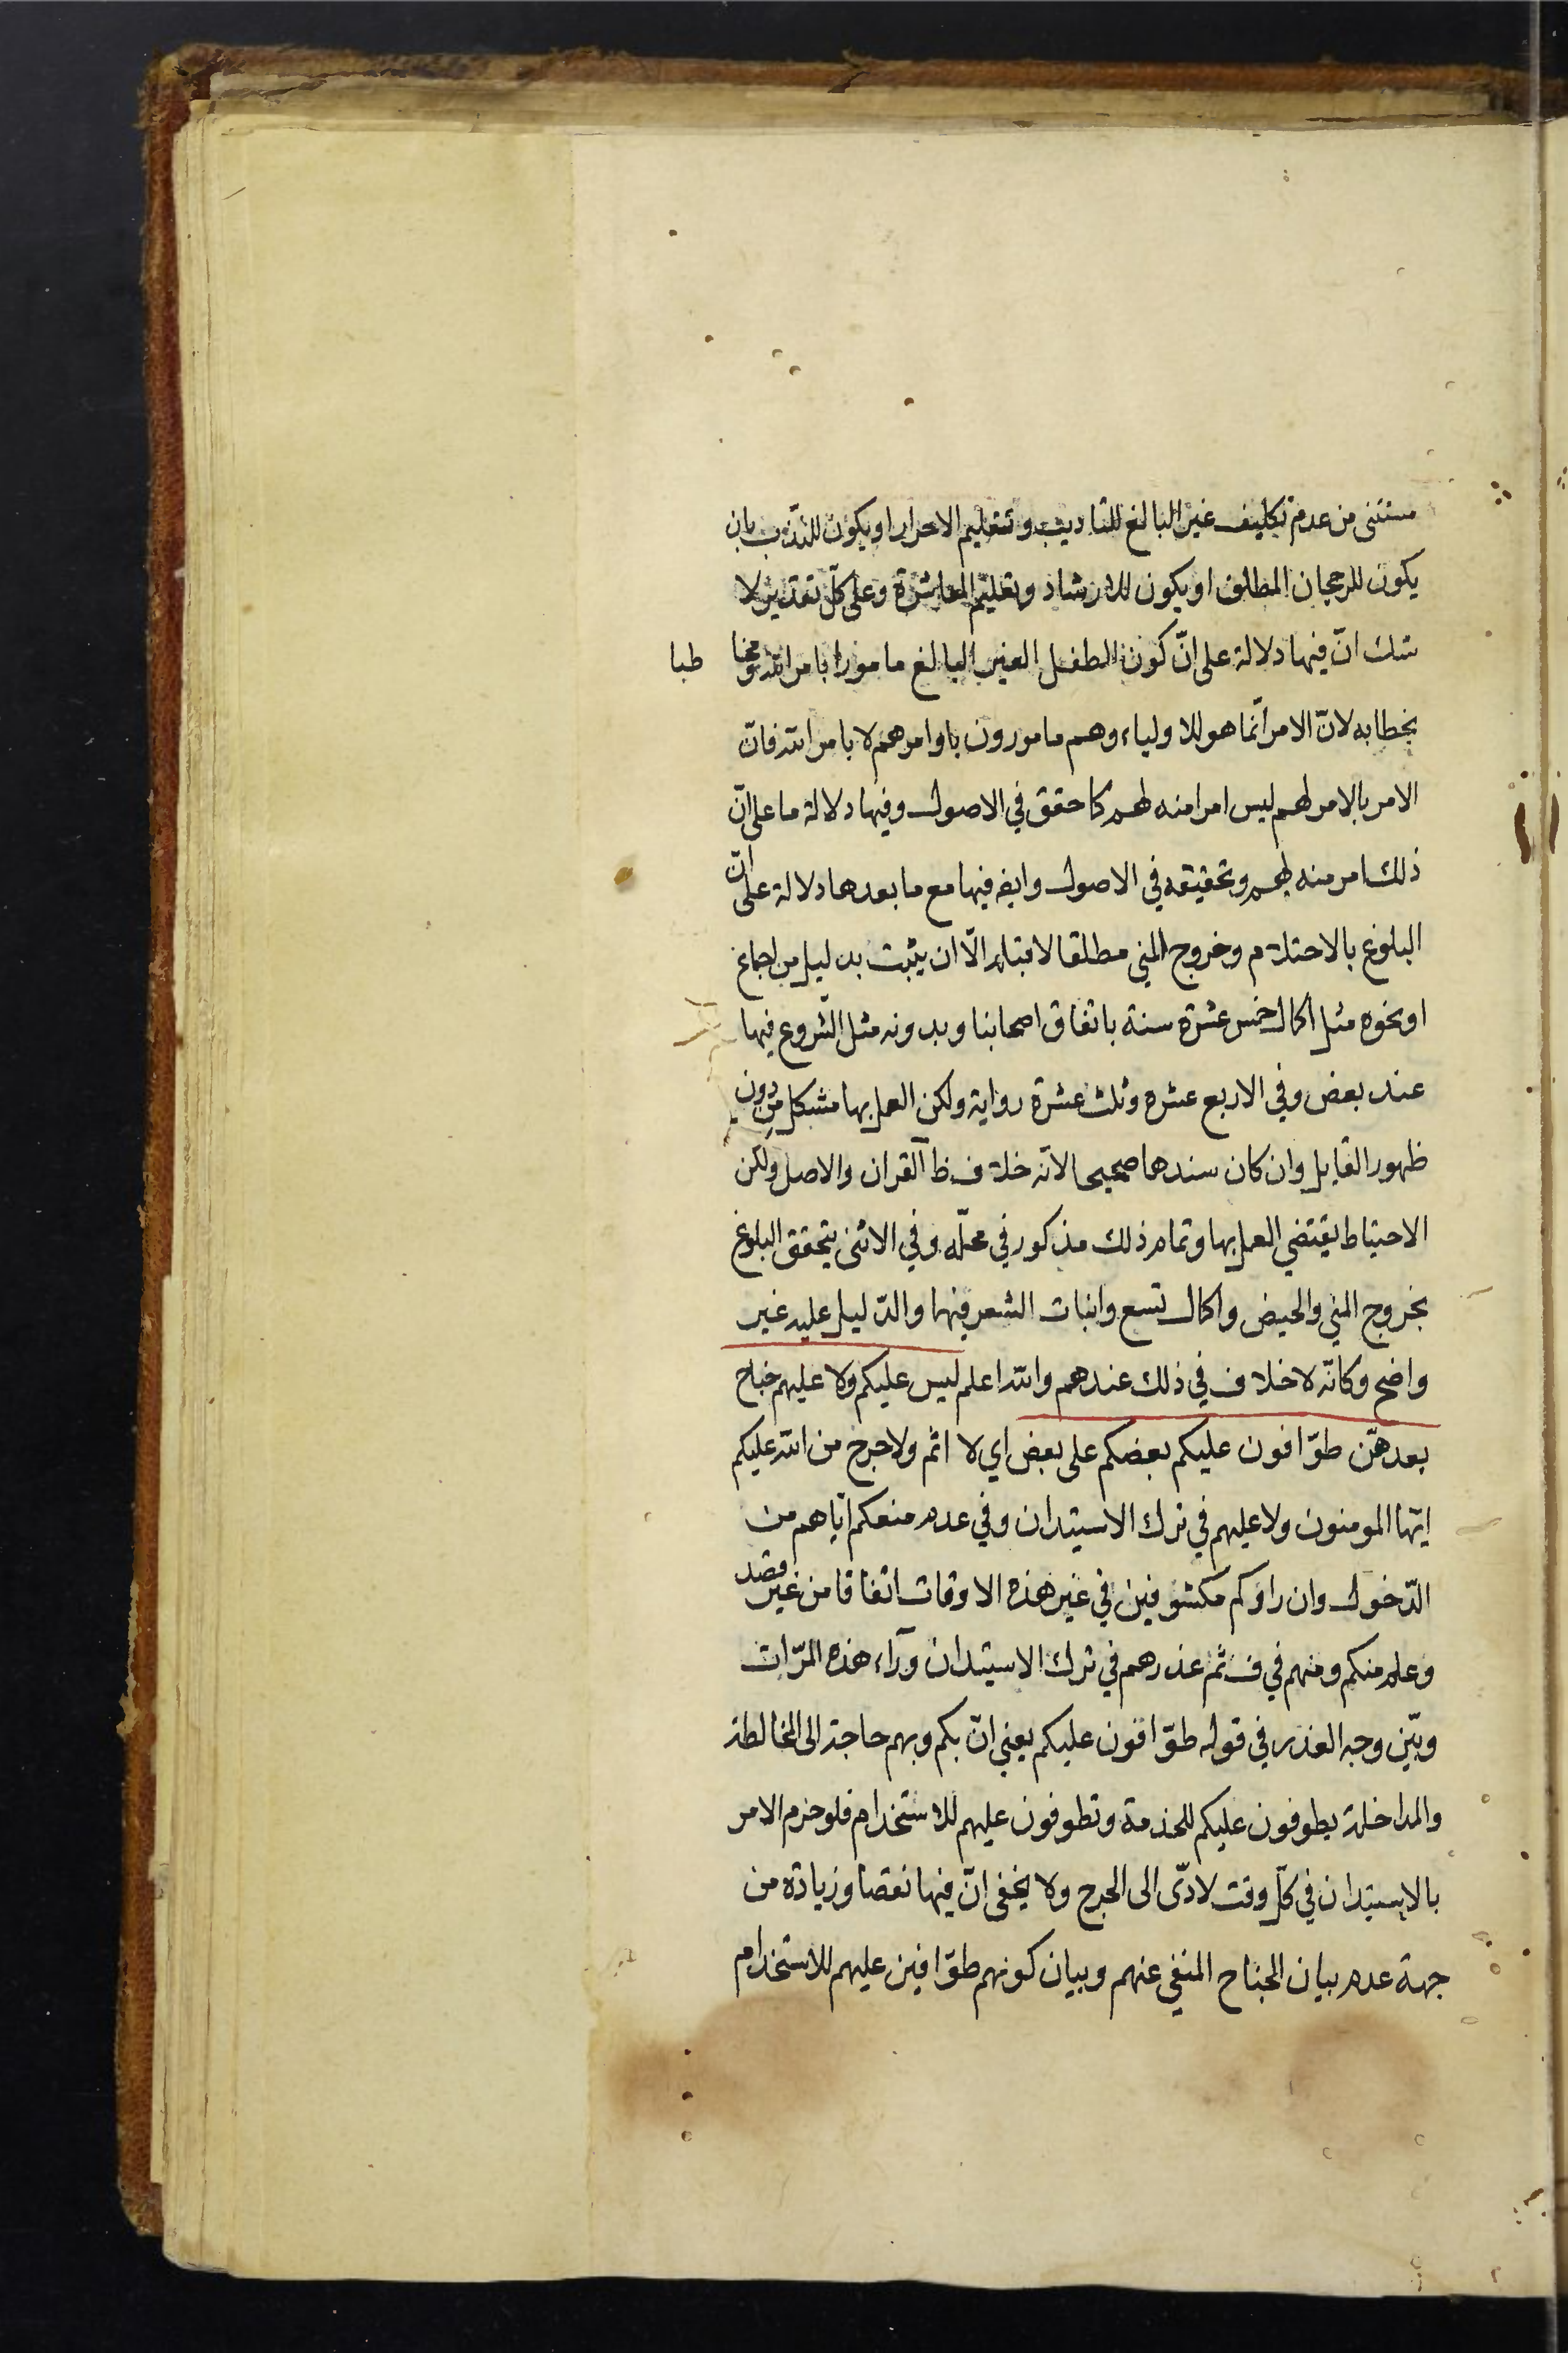 مستثنى من عدم تكليف غير البالغ للتاديب وتعليم الاحرار او يكون للندب بان
يكون للرجحان المطلق او يكون للارشاد وتعليم المعاشرة وعلى كلّ تقدير لا
شك انّ فيها دلالة على انّ كون الطفل الغير البالغ مامورا بامر الله ومخا طبا
بخطابه لانّ الامر انّما هو للاولياء وهم مامورون باوامرهم لا بامر الله فانّ
الامر بالامر لهم ليس امرا منه لهم كما حقق في الاصول وفيها دلالة ما على انّ
ذلك امر منه لهم وتحقيقه في الاصول وايضا فيها مع ما بعدها دلالة على انّ
البلوغ بالاحتلام وخروج المني مطلقا لا قبله الّا ان يثبت بدليل من اجماع
او نحوه مثل اكمال خمس عشرة سنة باتفاق اصحابنا وبدونه مثل الشّروع فيها
عند بعض وفي الاربع عشره وثلث عشرة رواية ولكن العمل بها مشكل من دون
ظهور القايل وان كان سندها صحيحا لانّه خلاف ظ القران والاصل ولكن
الاحتياط يقتضي العمل بها وتمام ذلك مذكور في محلّه وفي الانثى يتحقق البلوغ
بخروج المني والحيض واكمال تسع وانبات الشعر فيهما والدّليل عليه غير
واضح وكانّه لا خلاف في ذلك عندهم والله اعلم ليس عليكم ولا عليهم جناح
بعدهنّ طوّافون عليكم بعضكم على بعض اي لا اثم ولا حرج من الله عليكم
ايّها المومنون ولا عليهم في ترك الاستيذان وفي عدم منعكم ايّاهم من
الدّخول وان راوكم مكشوفين في غير هذه الاوقات اتفاقا من غير قصد
وعلم منكم ومنهم في ف ثم عذرهم في ترك الاستيذان وراء هذه المرّات
وبيّن وجه العذر في قوله طوّافون عليكم يعني انّ بكم وبهم حاجة الى المخالطة
والمداخلة يطوفون عليكم للخدمة وتطوفون عليهم للاستخدام فلو جزم الامر
بالاستيذان في كلّ وقت لادّى الى الحرج ولا يخفى انّ فيها نقصا وزيادة من
جهة عدم بيان الجناح المنفي عنهم وبيان كونهم طوّافين عليهم للاستخدام